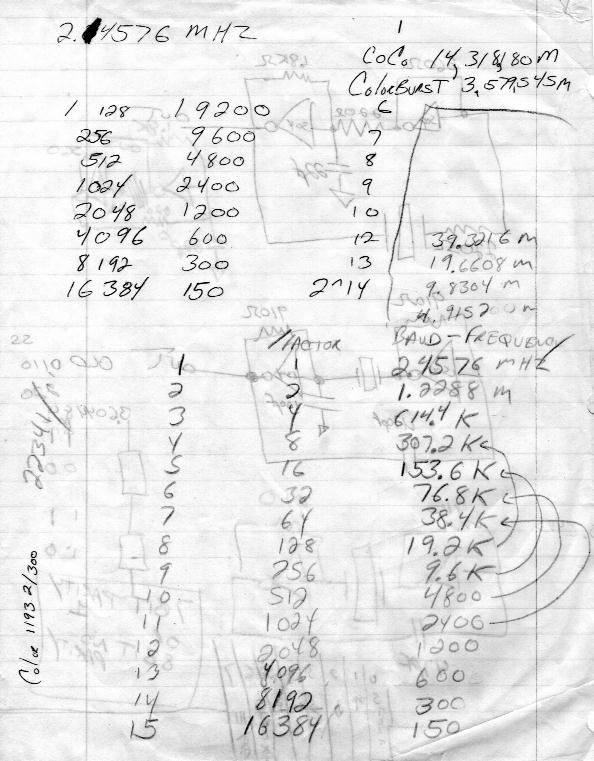 2.4576 MHZ
1
CoCo 14,318,180 M
ColorBURST 3,579,545 M
1 128 19200 6
256 9600 7
512 4800 8
1024 2400 9
2048 1200 10
4096 600 12
8192 300 13
16384 150 2^14
39.3216 M
19.6608 M
9.8304 M
4.9152 M
/FACTOR BAUD-FREQUENCY
1 1 2.4576 MHZ
2 2 1.2288 M
3 4 614.4 K
4 8 307.2 K
5 16 153.6 K
6 32 76.8 K
7 64 38.4 K
8 128 19.2 K
9 256 9.6 K
10 512 4800
11 1024 2400
12 2048 1200
13 4096 600
14 8192 300
15 16384 150
Color 11932/300